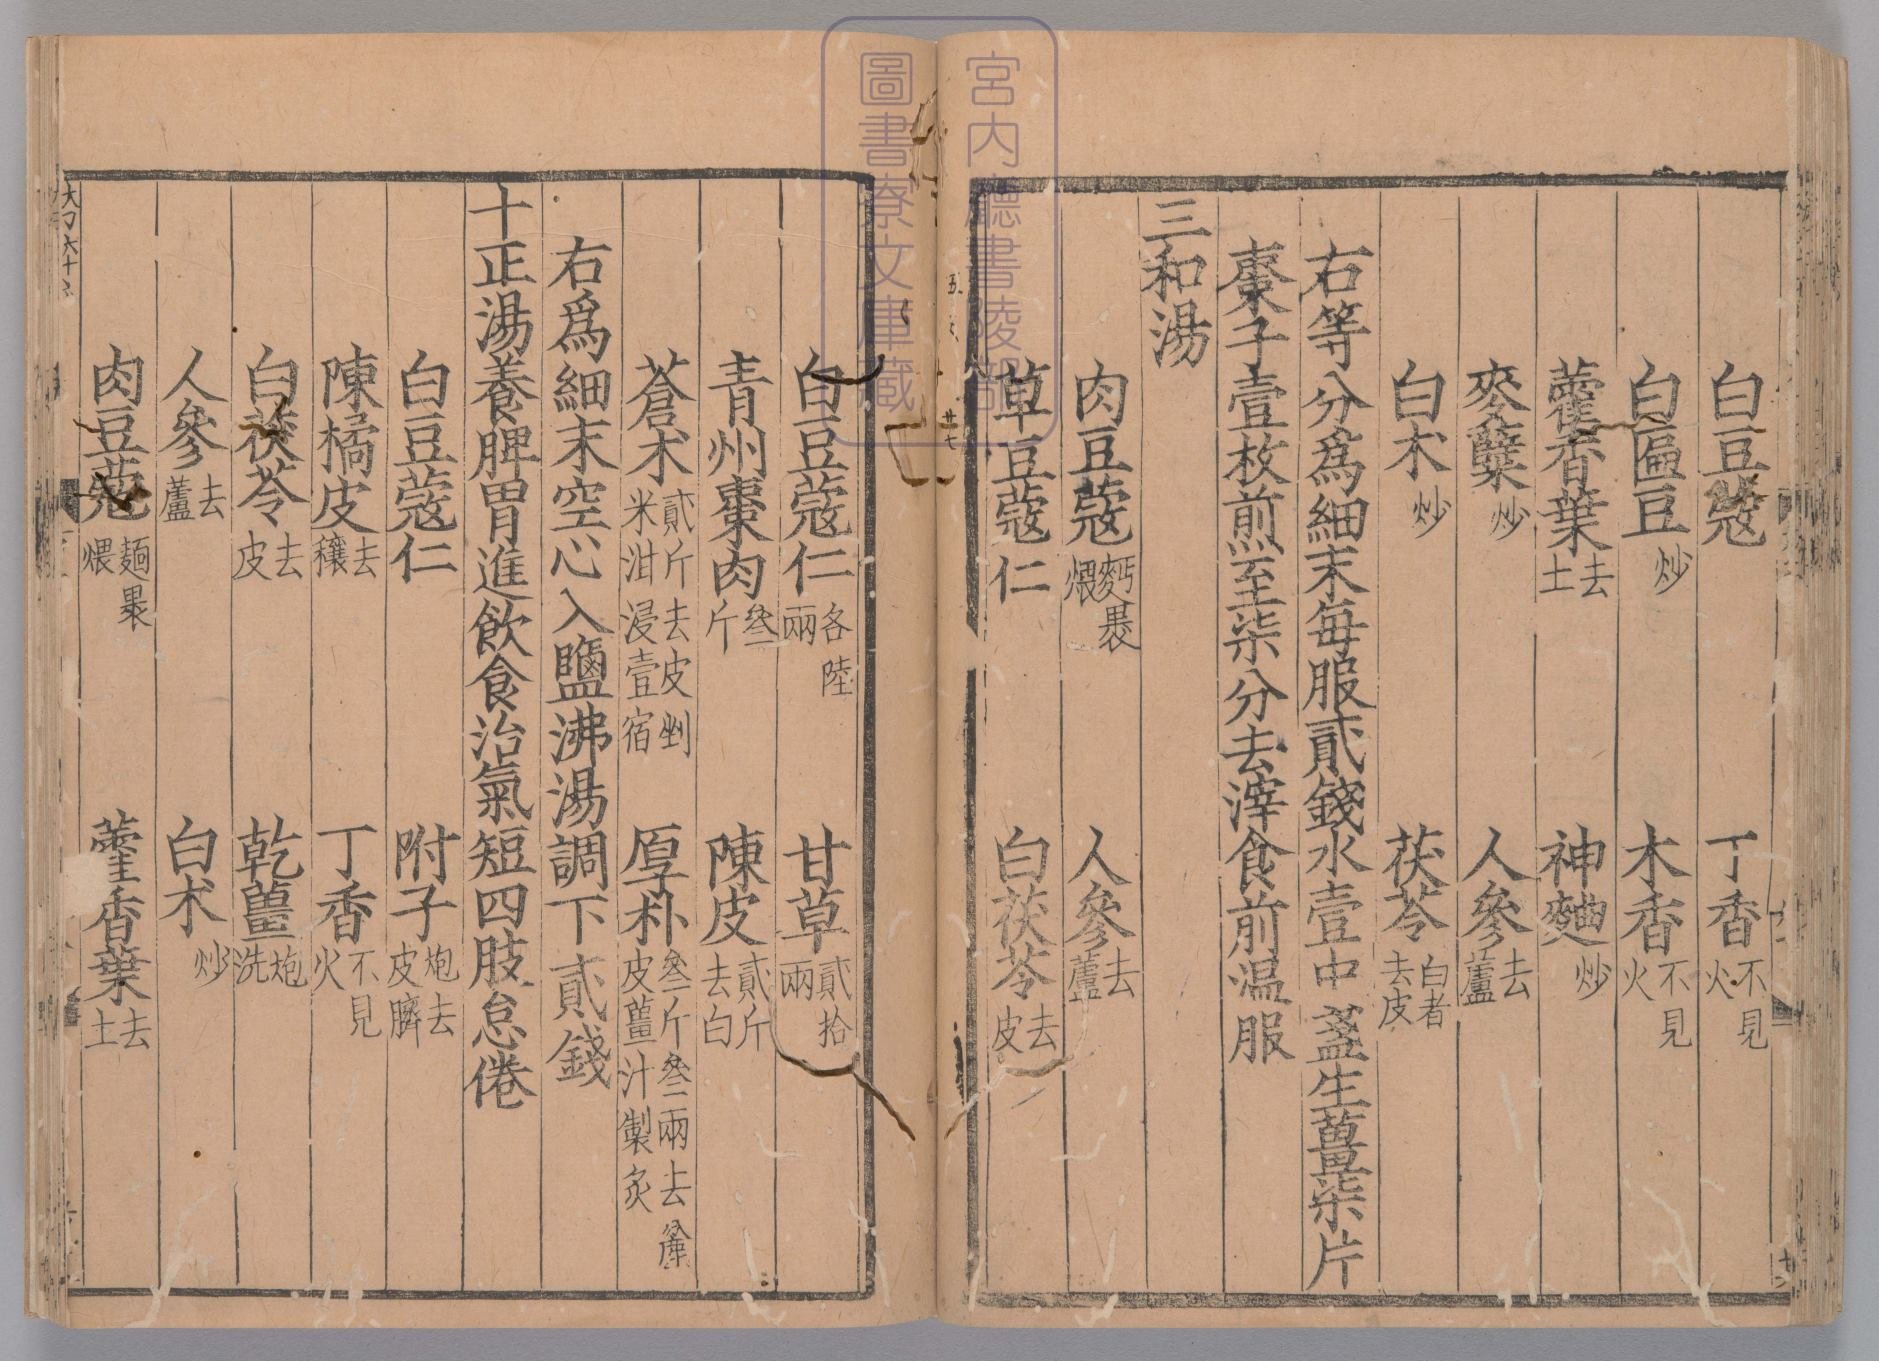 白豆蔻 丁香不見火
白匾豆炒 木香不見火
藿香葉去土 神麯炒
麥糵炒 人參去蘆
白术炒 茯苓白者去皮
右等分爲細末每服貳錢水壹中盞生薑柒片
棗子壹枚煎至柒分去滓食前温服
三和湯
肉豆蔻麪裹煨 人參去蘆
草豆蔻仁 白茯苓去皮
白豆蔻仁各陸兩 甘草貳拾兩
青州棗肉叄斤 陳皮貳斤去白
蒼术貳斤去皮剉米泔浸壹宿 厚朴叄斤叄兩去麄皮薑汁製炙
右爲細末空心入鹽沸湯調下貳錢
十正湯養脾胃進飲食治氣短四肢怠倦
白豆蔻仁 附子炮去皮臍
陳橘皮去穰 丁香不見火
白茯苓去皮 乾薑炮洗
人參去蘆 白术炒
肉豆蔻麵裹煨 藿香葉去土
宮内廳書陵部
圖書寮文庫藏